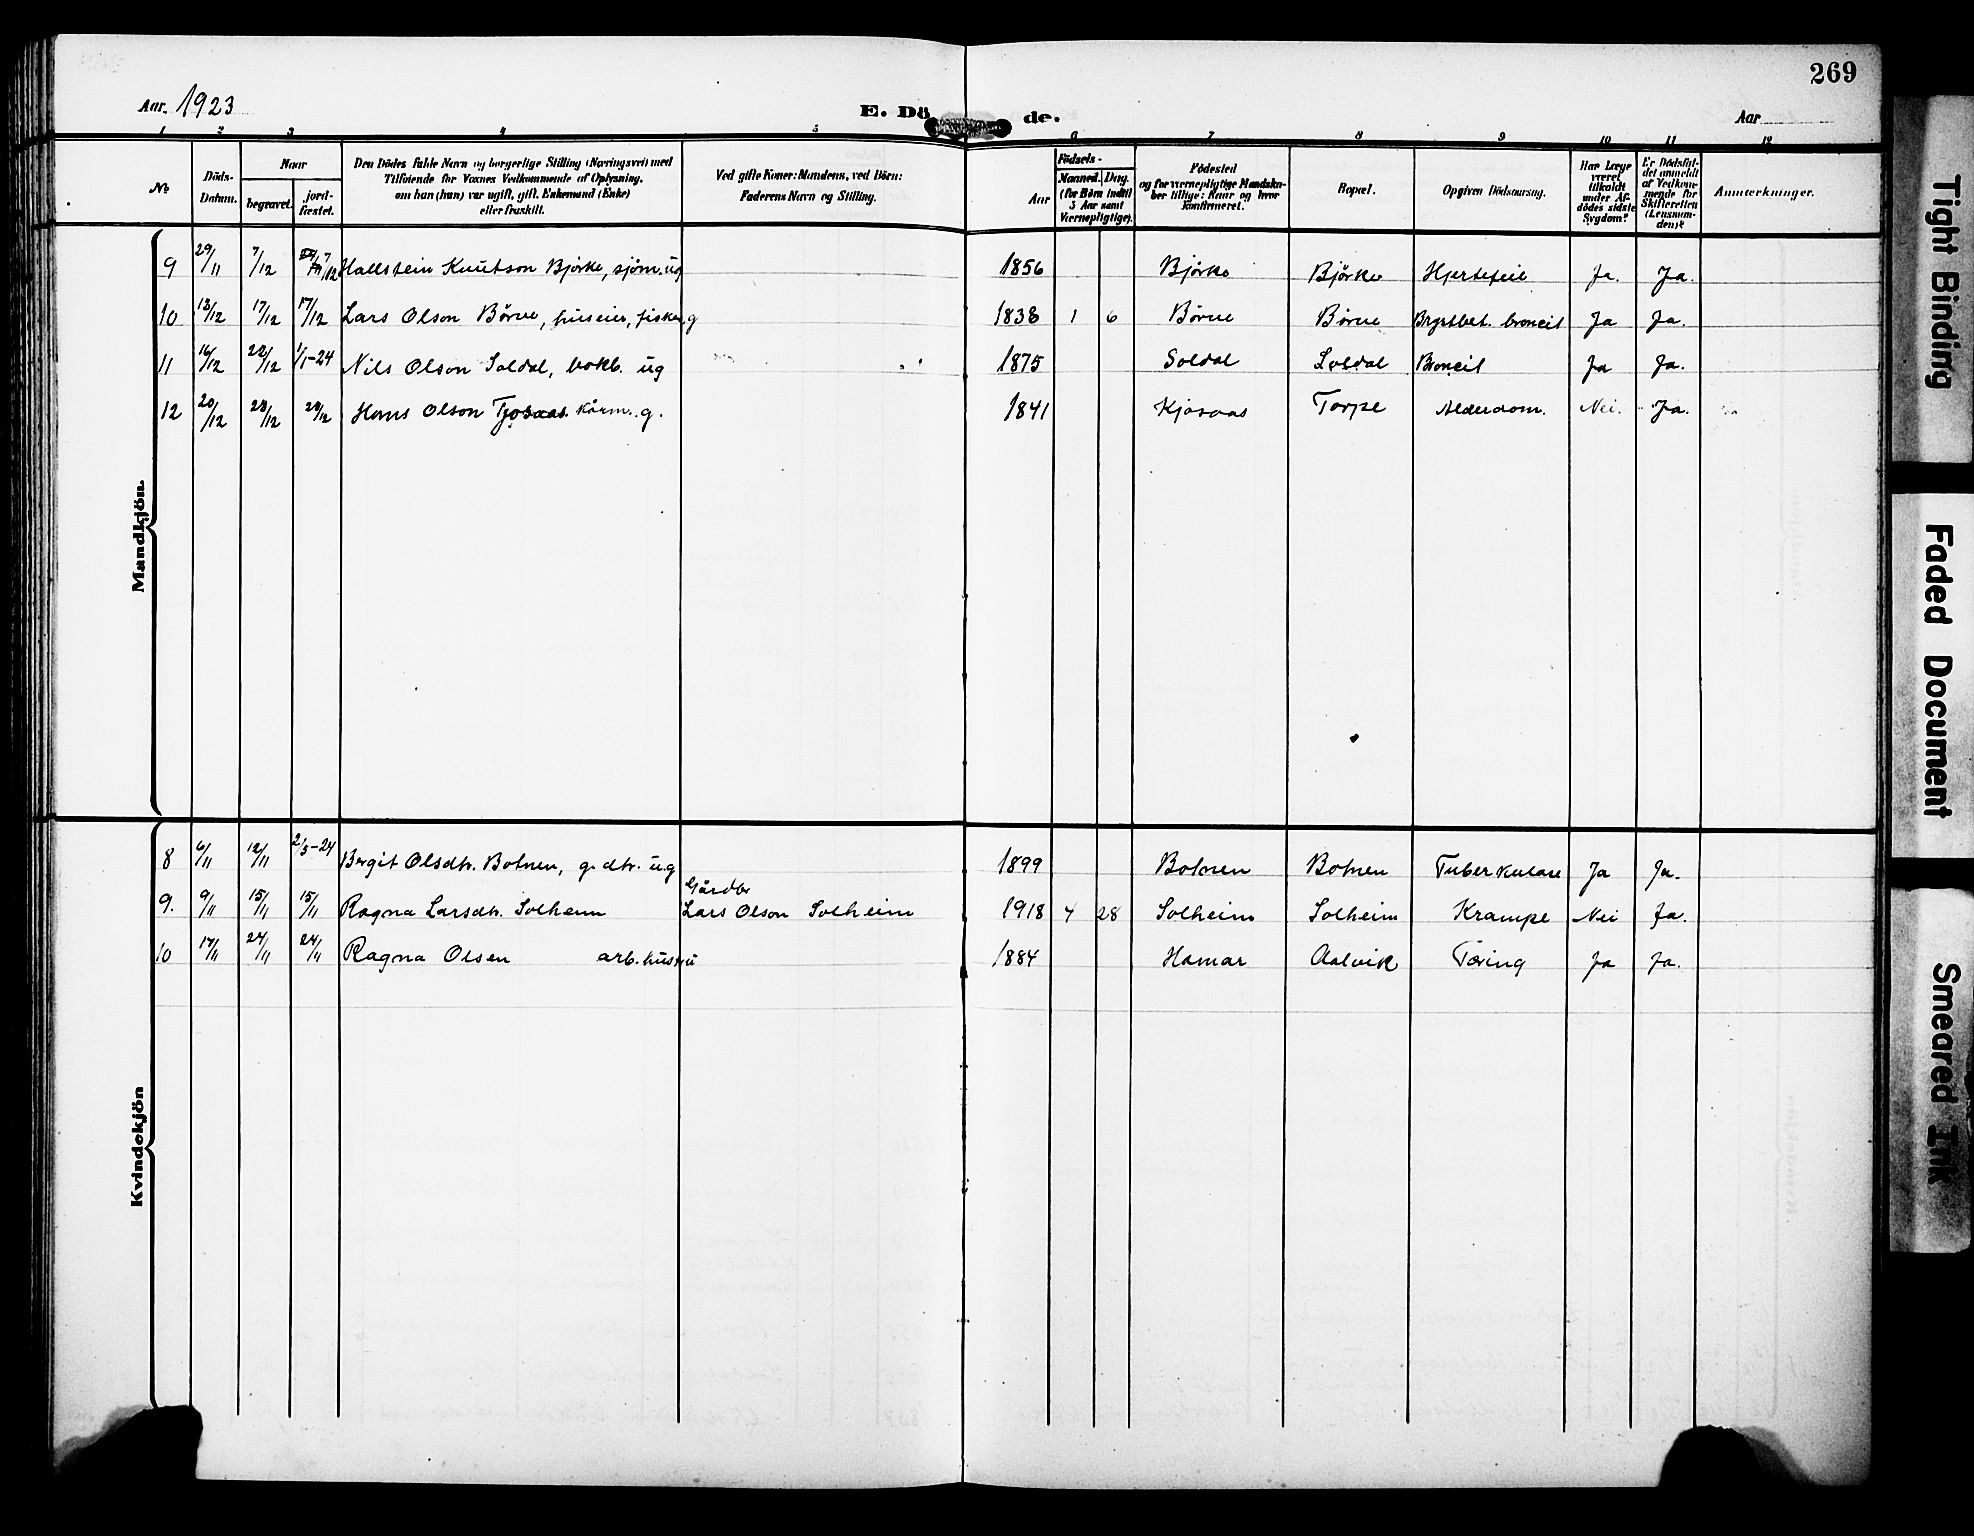 269
Aar. 1923
E. Dö
de.
Aar
1 2 3 4 5 6 7 8 9 10 11 12
No
Döds-
Datum.
Naar
begravet.
jord-
fæstet.
Den Dödes fulde Navn og borgerlige Stilling (Næringsvei) med
Tilföiende for Voxnes Vedkommende af Oplysning,
om han (hun) var ugift, gift, Enkemand (Enke)
eller fraskilt.
Ved gifte Koner: Mandens, ved Börn:
Faderens Navn og Stilling.
Födsels-
Aar
Maaned. Dag.
(for Börn indtil
5 Aar samt
Værnepligtige).
Födested
og for værnepligtige Mandska-
ber tillige: naar og hvor
konfirmeret.
Bopæl.
Opgiven Dödsaarsag.
Har Læge
været
tilkaldt
under Af-
dödes sidste
Sygdom?
Er Dödsfal-
det anmeldt
af Vedkom-
mende for
Skifteretten
(Lensman-
den)?
Anmærkninger.
Mandkjön.
9 29/11 7/12 7/12 Hallstein Knutson Bjørke, sjøm. ug 1856 Bjørke Bjørke Hjertefeil Ja. Ja.
10 13/12 17/12 17/12 Lars Olson Børve, huseier, fisker, g 1838 1 6 Børve Børve Brystbet. broncit Ja Ja.
11 16/12 22/12 1/1-24 Nils Olson Soldal, bokb. ug 1875 Soldal Soldal Broncit Ja Ja.
12 20/12 28/12 28/12 Hans Olson Tjosaas kårm. g. 1841 Kjosaas Torpe Alderdom. Nei. Ja.
Kvindekjön
8 6/11 12/11 2/3-24 Bergit Olsdtr. Botnen, g. dtr. ug 1899 Botnen Botnen Tuberkulose Ja Ja.
Gårdbr
9. 9/11 15/11 15/11 Ragna Larsdtr. Solheim Lars Olson Solheim 1918 4 28 Solheim Solheim Krampe Nei Ja.
10 17/11 24/11 24/11 Ragna Olsen arb. hustru 1884 Hamar Aalvik Tæring Ja Ja.
Tight Binding
Faded Document
Smeared Ink